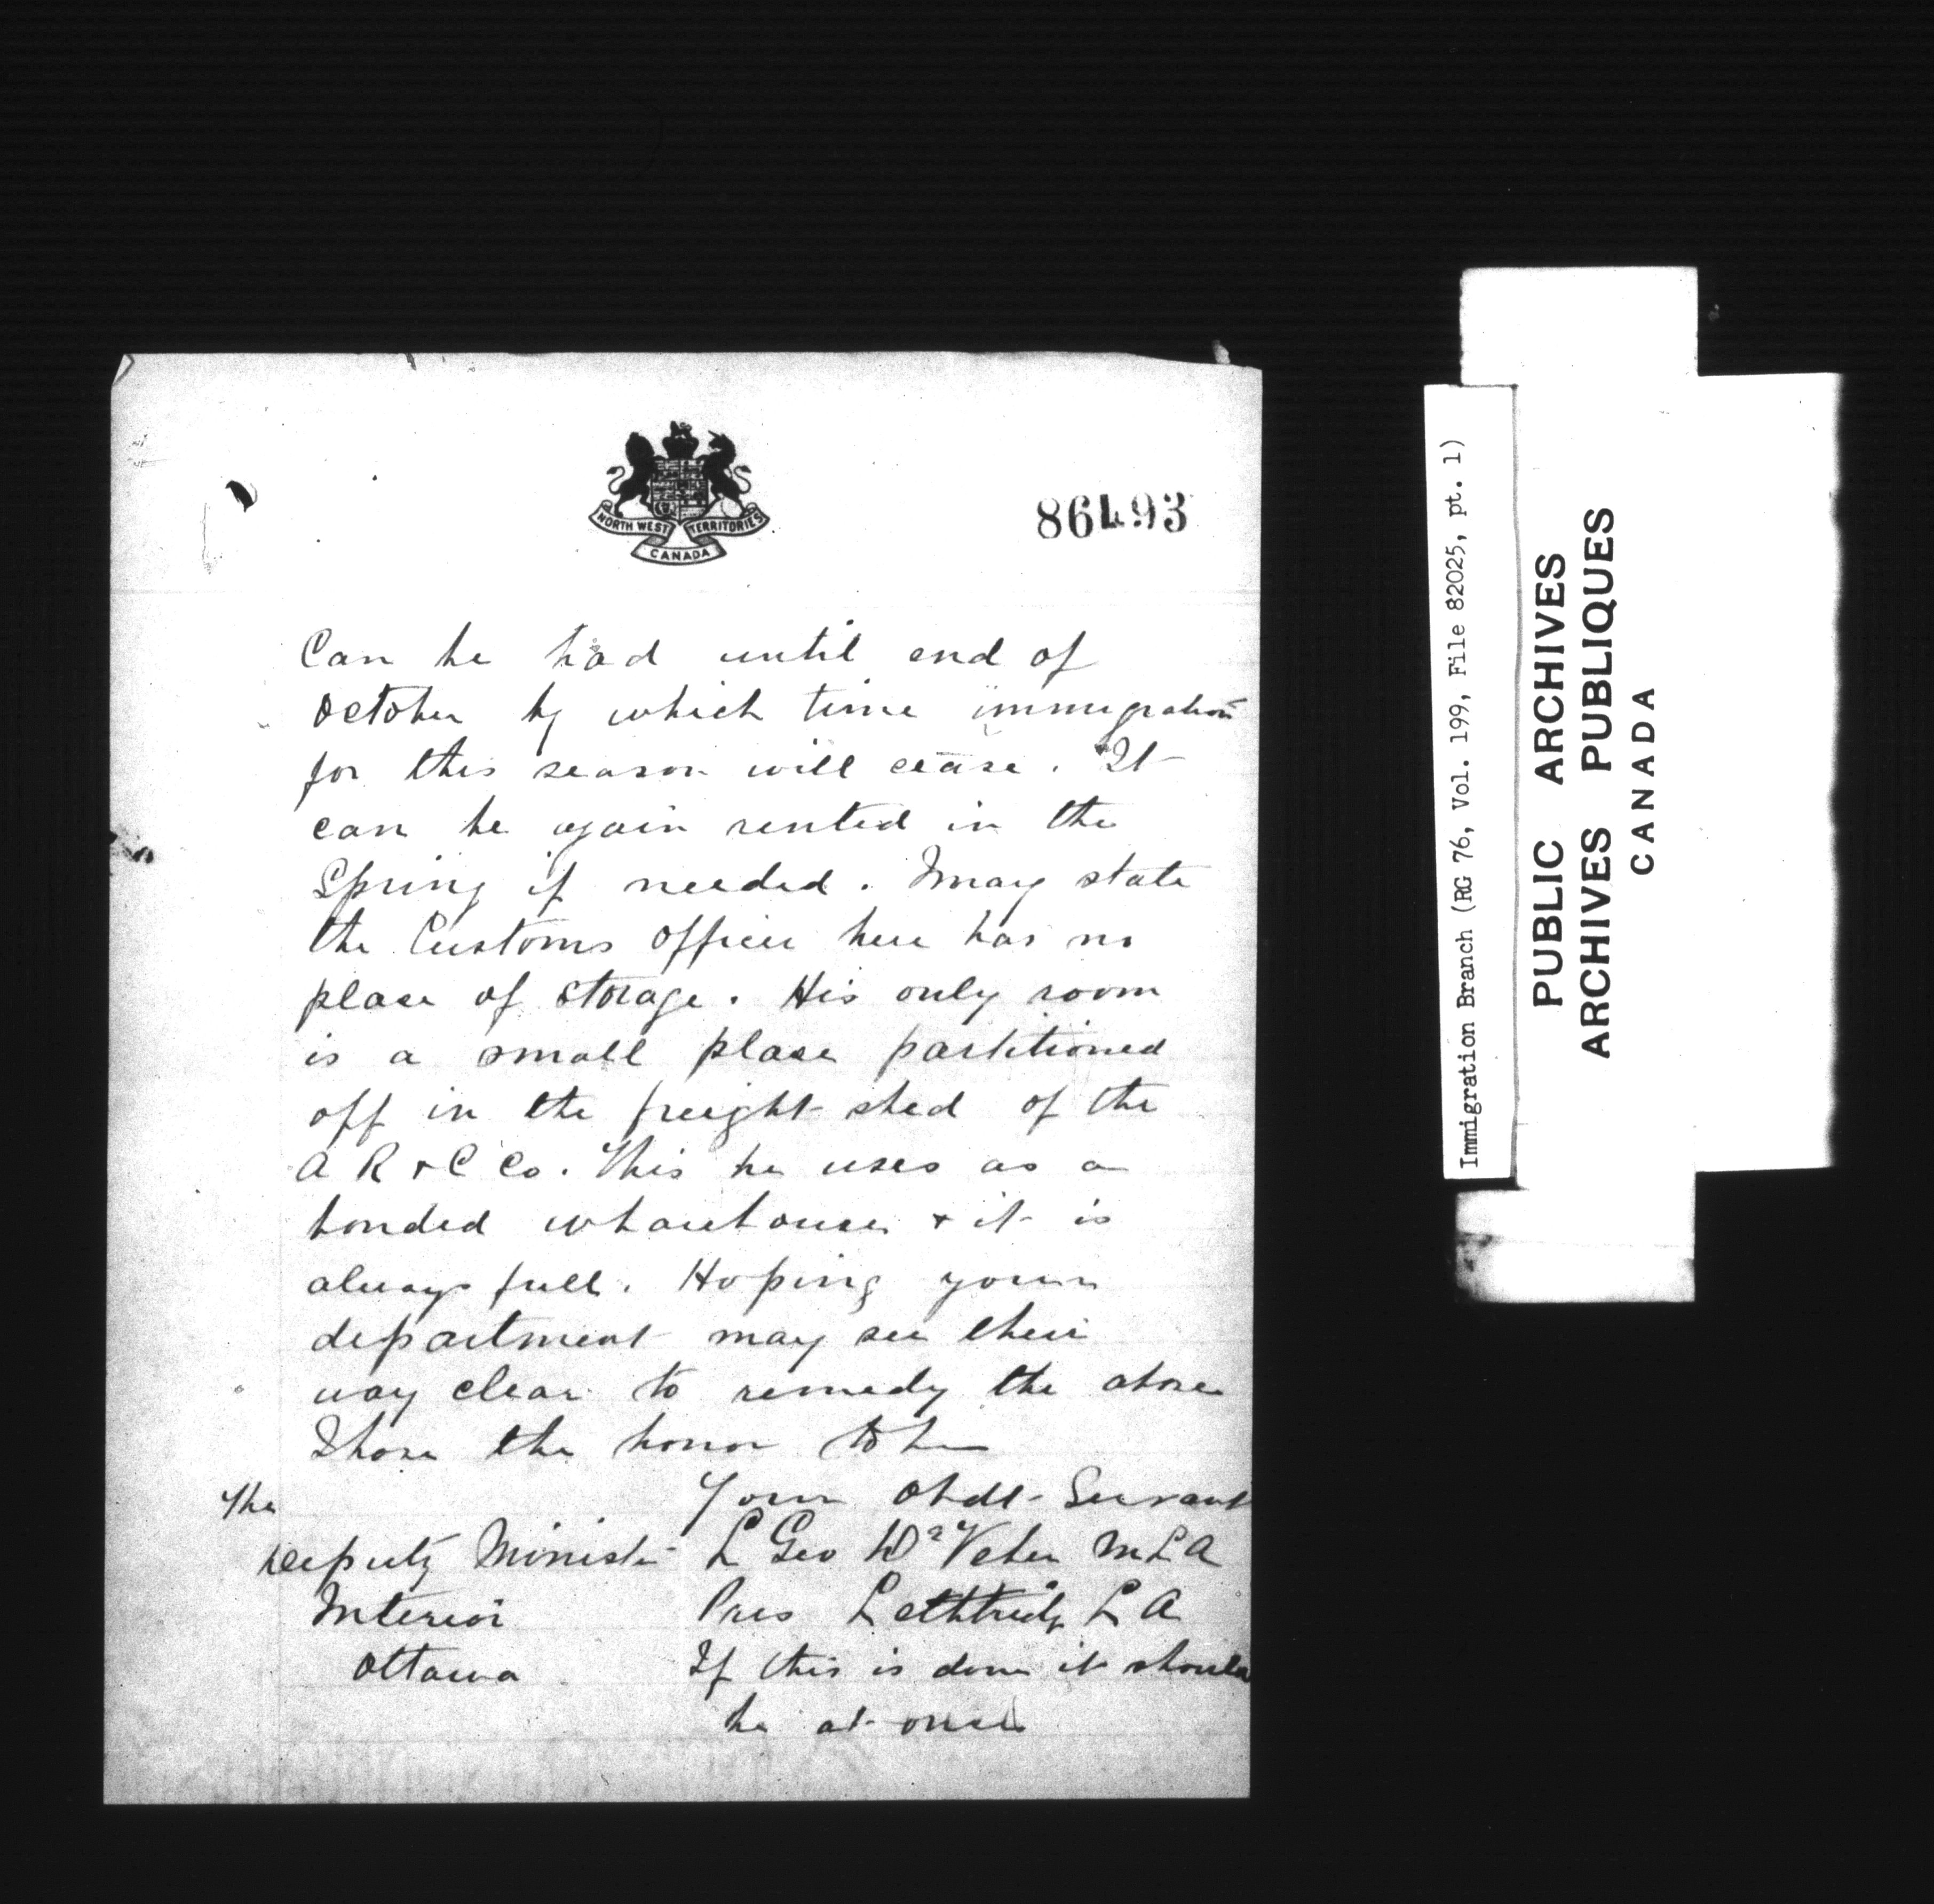 NORTH WEST TERRITORIES
CANADA
86493
Can be had until end of
October by which time immigration
for this season will cease. It
can be again rented in the
Spring if needed. I may state
the Customs Officer here has no
place of storage. His only room
is a small place partitioned
off in the freight shed of the
A R & C Co. This he uses as a
bonded wharehouse & it is
always full. Hoping your
department may see their
way clear to remedy the above
I have the honor to be
Your Obdt. Servant
L Geo De Veber M L A
Pres Lethbridge L A
If this is done it should
be at once
The
Deputy Minister
Interior
Ottawa
Immigration Branch (RG 76, Vol. 199, File 82025, pt. 1)
PUBLIC ARCHIVES
ARCHIVES PUBLIQUES
CANADA